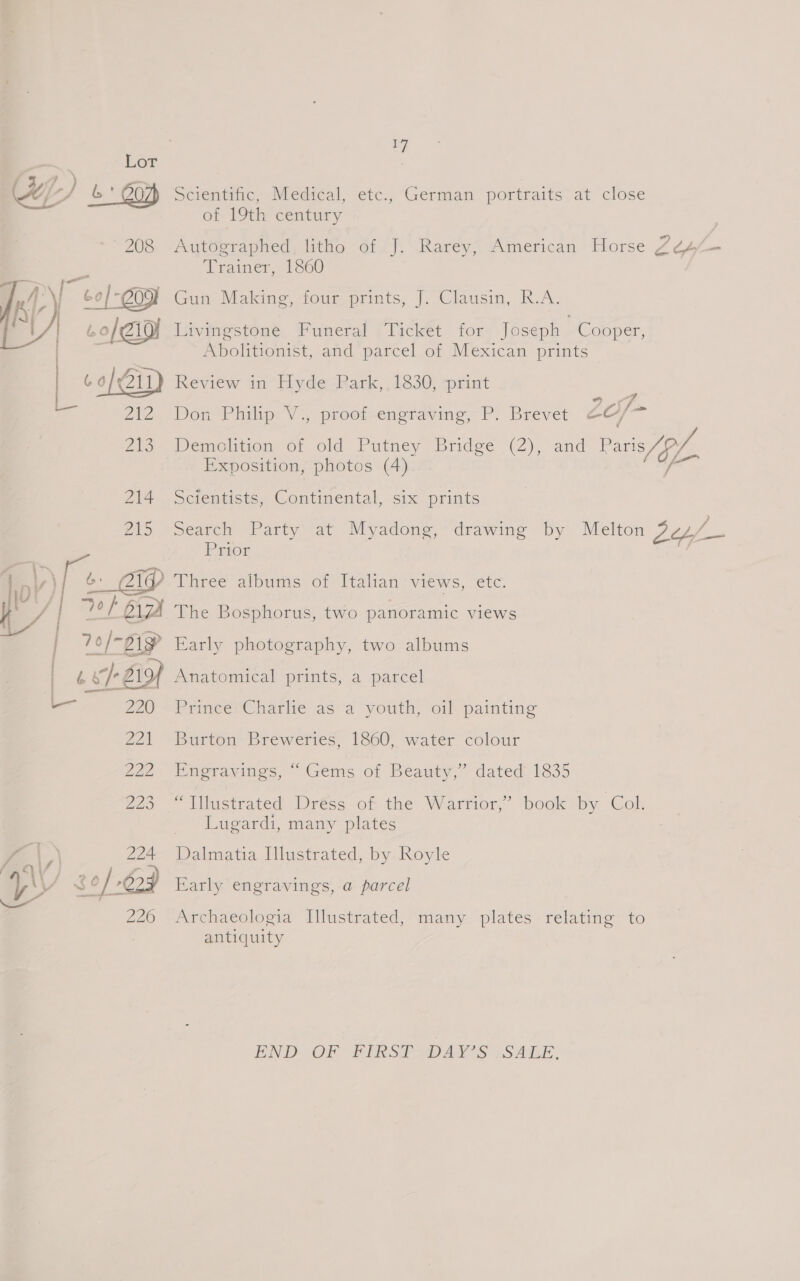 17
Lot
6' 207 Scientific, Medical, etc., German portraits at close
of 19th century
208 Autographed litho of J. Rarey, American Horse
Trainer, 1860
60/- 209 Gun Making, four prints, J. Clausin, R.A.
60/ 210 Livingstone Funeral Ticket for Joseph Cooper,
Abolitionist, and parcel of Mexican prints
60/ 211 Review in Hyde Park, 1830, print
212 Don Philip V., proof engraving, P. Brevet 20/-
213 Demolition of old Putney Bridge (2), and Paris
Exposition, photos (4)
214 Scientists, Continental, six prints
215 Search Party at Myadong, drawing by Melton
Prior
6: 216 Three albums of Italian views, etc.
70/ 217 The Bosphorus, two panoramic views
70/- 218 Early photography, two albums
219 Anatomical prints, a parcel
220 Prince Charlie as a youth, oil painting
221 Burton Breweries, 1860, water colour
222 Engravings, “Gems of Beauty,” dated 1835
223 “Illustrated Dress of the Warrior,” book by Col.
Lugardi, many plates
224 Dalmatia Illustrated, by Royle
20/- 225 Early engravings, a parcel
226 Archaeologia Illustrated, many plates relating to
antiquity
END OF FIRST DAY’S SALE.